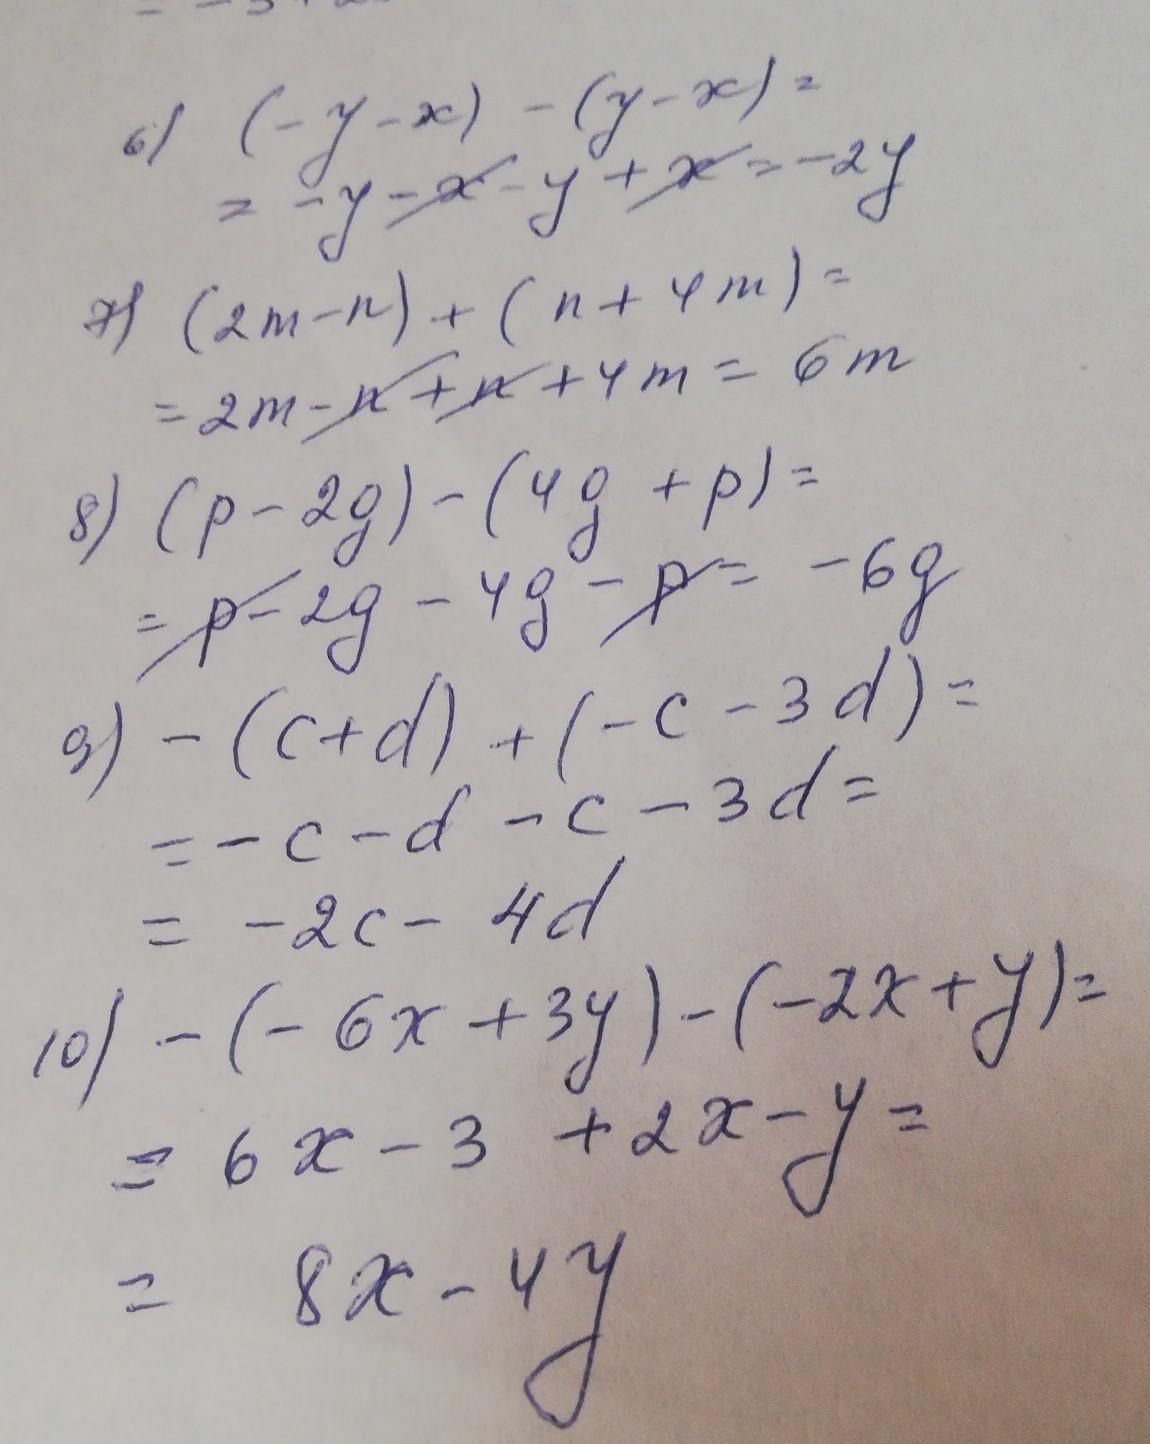 6) (-y-x) - (y-x) =
= -y-x-y+x = -2y
7) (2m-n) + (n+4m) =
= 2m-n+n+4m = 6m
8) (p-2g) - (4g+p) =
= p-2g-4g-p = -6g
9) -(c+d) + (-c-3d) =
= -c-d-c-3d =
= -2c-4d
10) -(-6x+3y) - (-2x+y) =
= 6x-3 +2x-y =
= 8x-4y